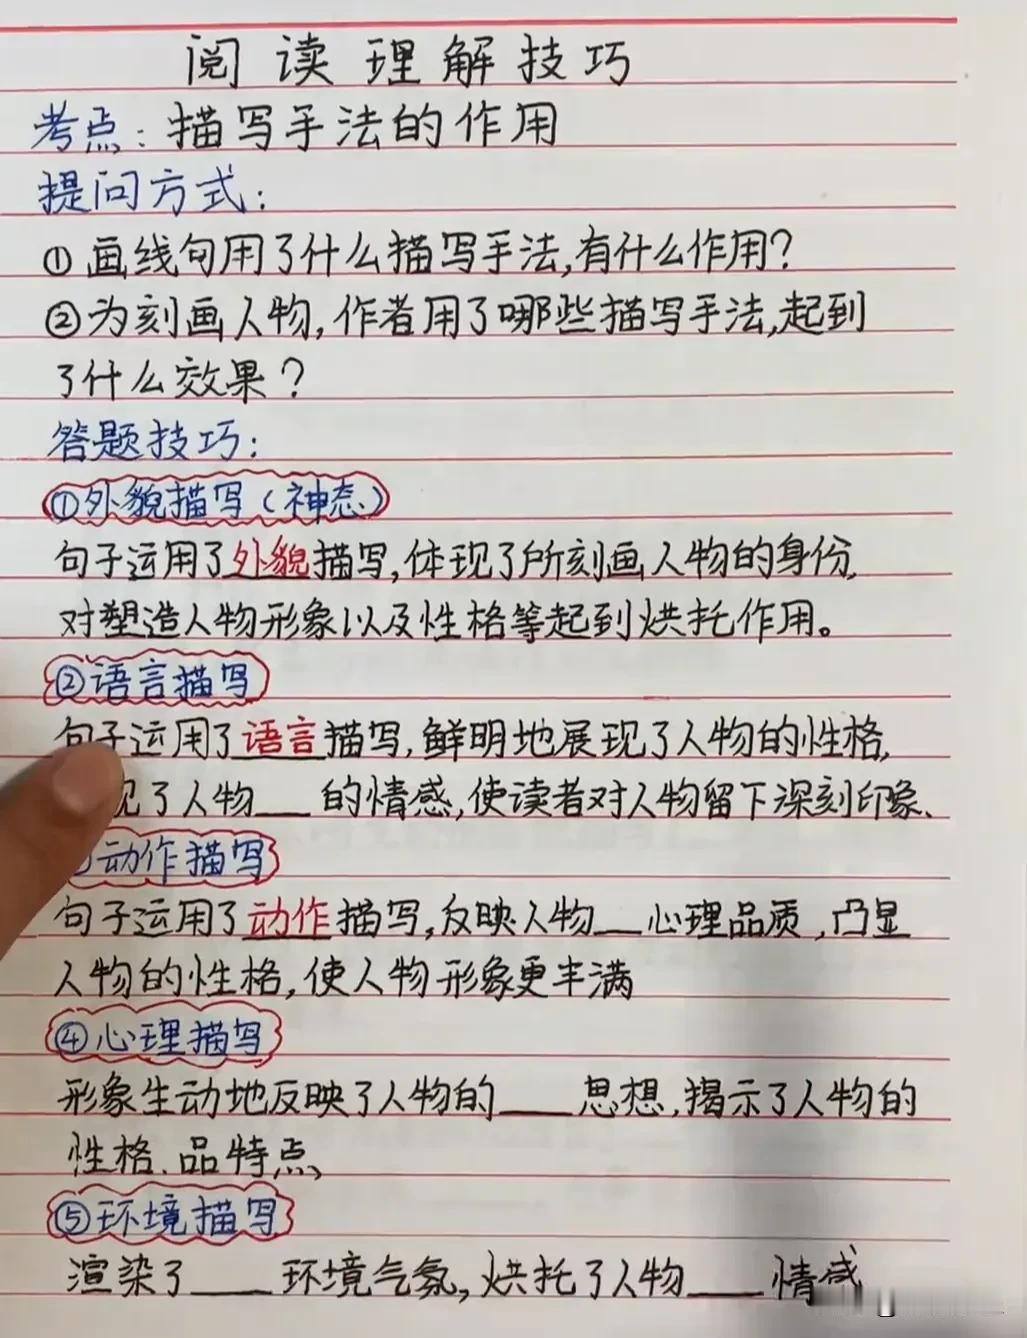 阅读理解技巧
考点：描写手法的作用
提问方式：
①画线句用了什么描写手法，有什么作用？
②为刻画人物，作者用了哪些描写手法，起到
了什么效果？
答题技巧：
①外貌描写（神态）
句子运用了外貌描写，体现了所刻画人物的身份，
对塑造人物形象以及性格等起到烘托作用。
②语言描写
句子运用了语言描写，鲜明地展现了人物的性格，
现了人物___的情感，使读者对人物留下深刻印象、
动作描写
句子运用了动作描写，反映人物___心理品质，凸显
人物的性格，使人物形象更丰满
④心理描写
形象生动地反映了人物的___思想，揭示了人物的
性格、品特点、
⑤环境描写
渲染了___环境气氛，烘托了人物___情感